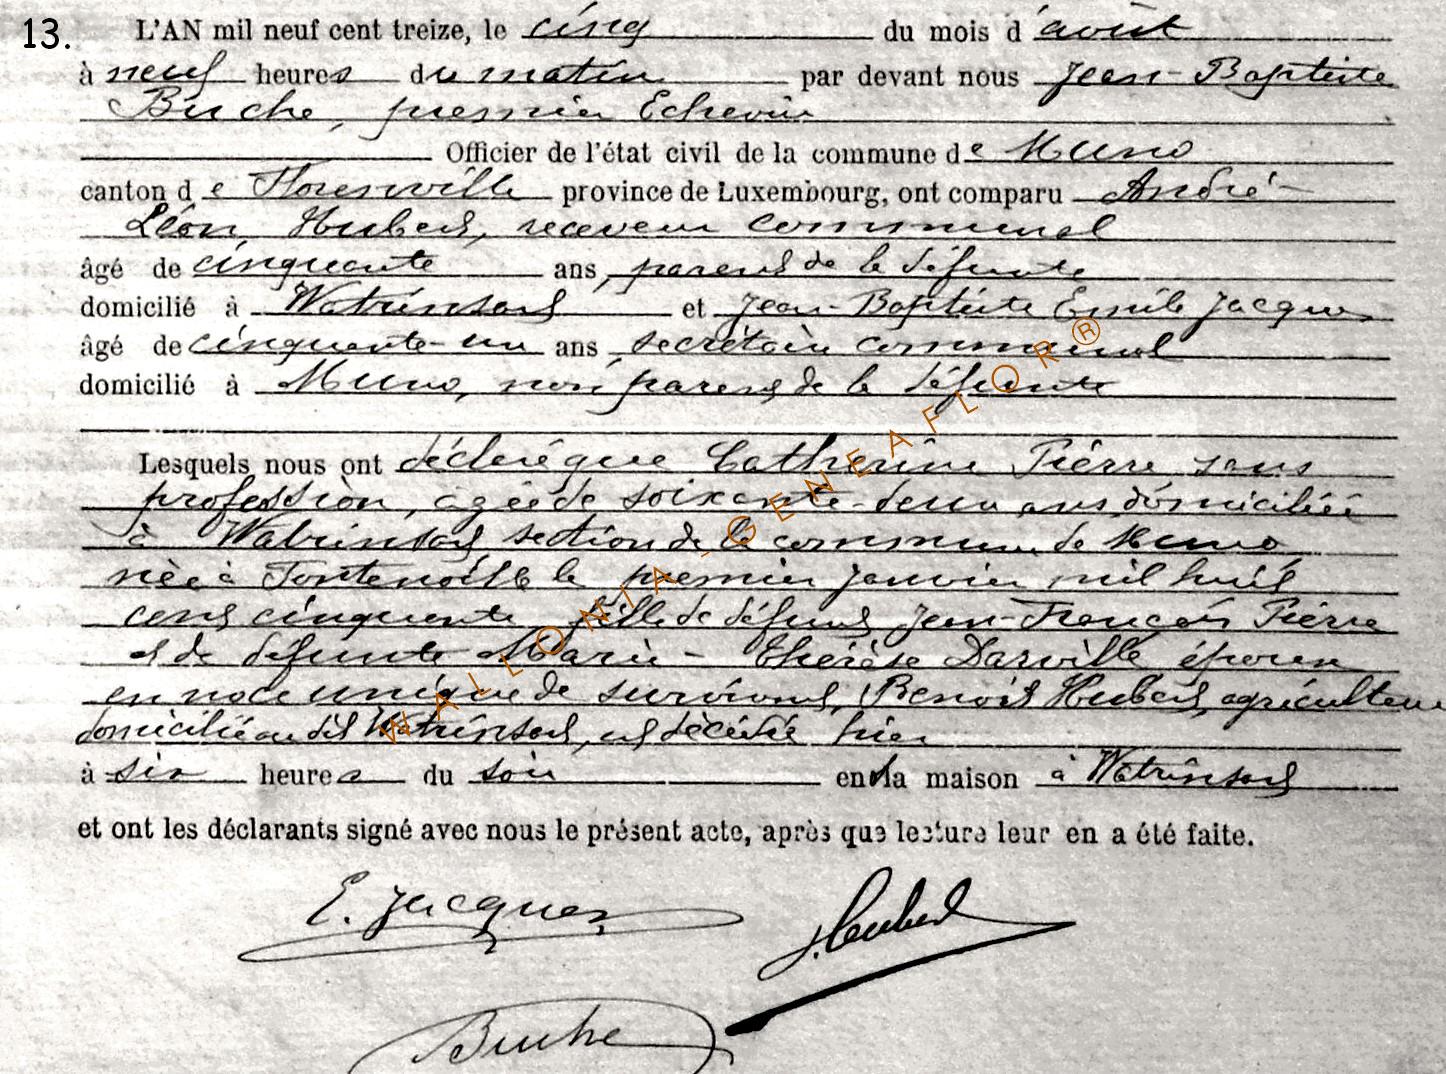 13.
L'AN mil neuf cent treize, le cinq du mois d'août
à neuf heures du matin par devant nous Jean-Baptiste
Buche, premier Echevin
Officier de l'état civil de la commune de Muno
canton de Florenville province de Luxembourg, ont comparu André-
Léon Hubert, receveur communal
âgé de cinquante ans, parent de la défunte
domicilié à Watrinsart et Jean-Baptiste Emile Jacques
âgé de cinquante-un ans, secrétaire communal
domicilié à Muno, non parent de la défunte
Lesquels nous ont déclaré que Catherine Pièrre sans
profession, agée de soixante-deux ans, domiciliée
à Watrinsart section de la commune de Muno
née à Fontenoille le premier janvier mil huit
cent cinquante fille de défunt Jean-François Pièrre
et de défunte Marie-Thérèse Darville épouse
en noce unique de survivant, Benoit Hubert, agriculteur
domicilié au dit Watrinsart, est décédée hier
à six heures du soir en la maison à Watrinsart
et ont les déclarants signé avec nous le présent acte, après que lecture leur en a été faite.
E. Jacques
Hubert
Buche
WALLONIA-GENEAFLOR®